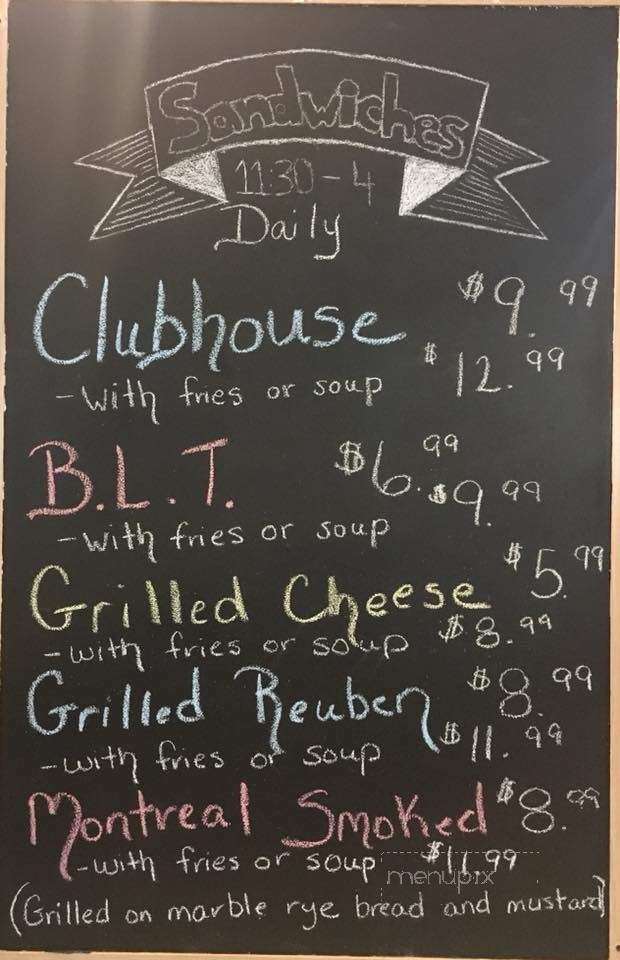 Sandwiches
11:30 - 4
Daily
Clubhouse $9.99
- with fries or soup $12.99
B.L.T. $6.99
- with fries or soup $9.99
Grilled Cheese $5.99
- with fries or soup $8.99
Grilled Reuben $8.99
- with fries or soup $11.99
Montreal Smoked $8.99
- with fries or soup $11.99
menupix
(Grilled on marble rye bread and mustard)